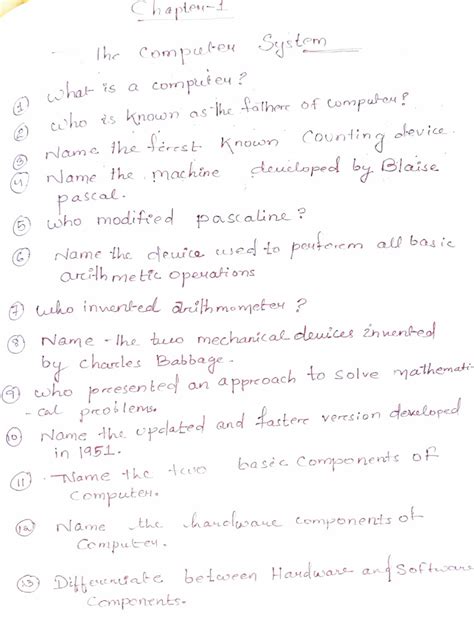 Chapter-1
The Computer System
① What is a computer?
② Who is known as the father of computer?
③ Name the first known counting device
④ Name the machine developed by Blaise
pascal.
⑤ Who modified pascaline?
⑥ Name the device used to perform all basic
arithmetic operations
⑦ Who invented arithmometer?
⑧ Name the two mechanical devices invented
by Charles Babbage.
⑨ Who presented an approach to solve mathemati-
-cal problems.
⑩ Name the updated and faster version developed
in 1951.
⑪ Name the two basic components of
Computer.
⑫ Name the hardware components of
Computer.
⑬ Differentiate between Hardware and Software
Components.